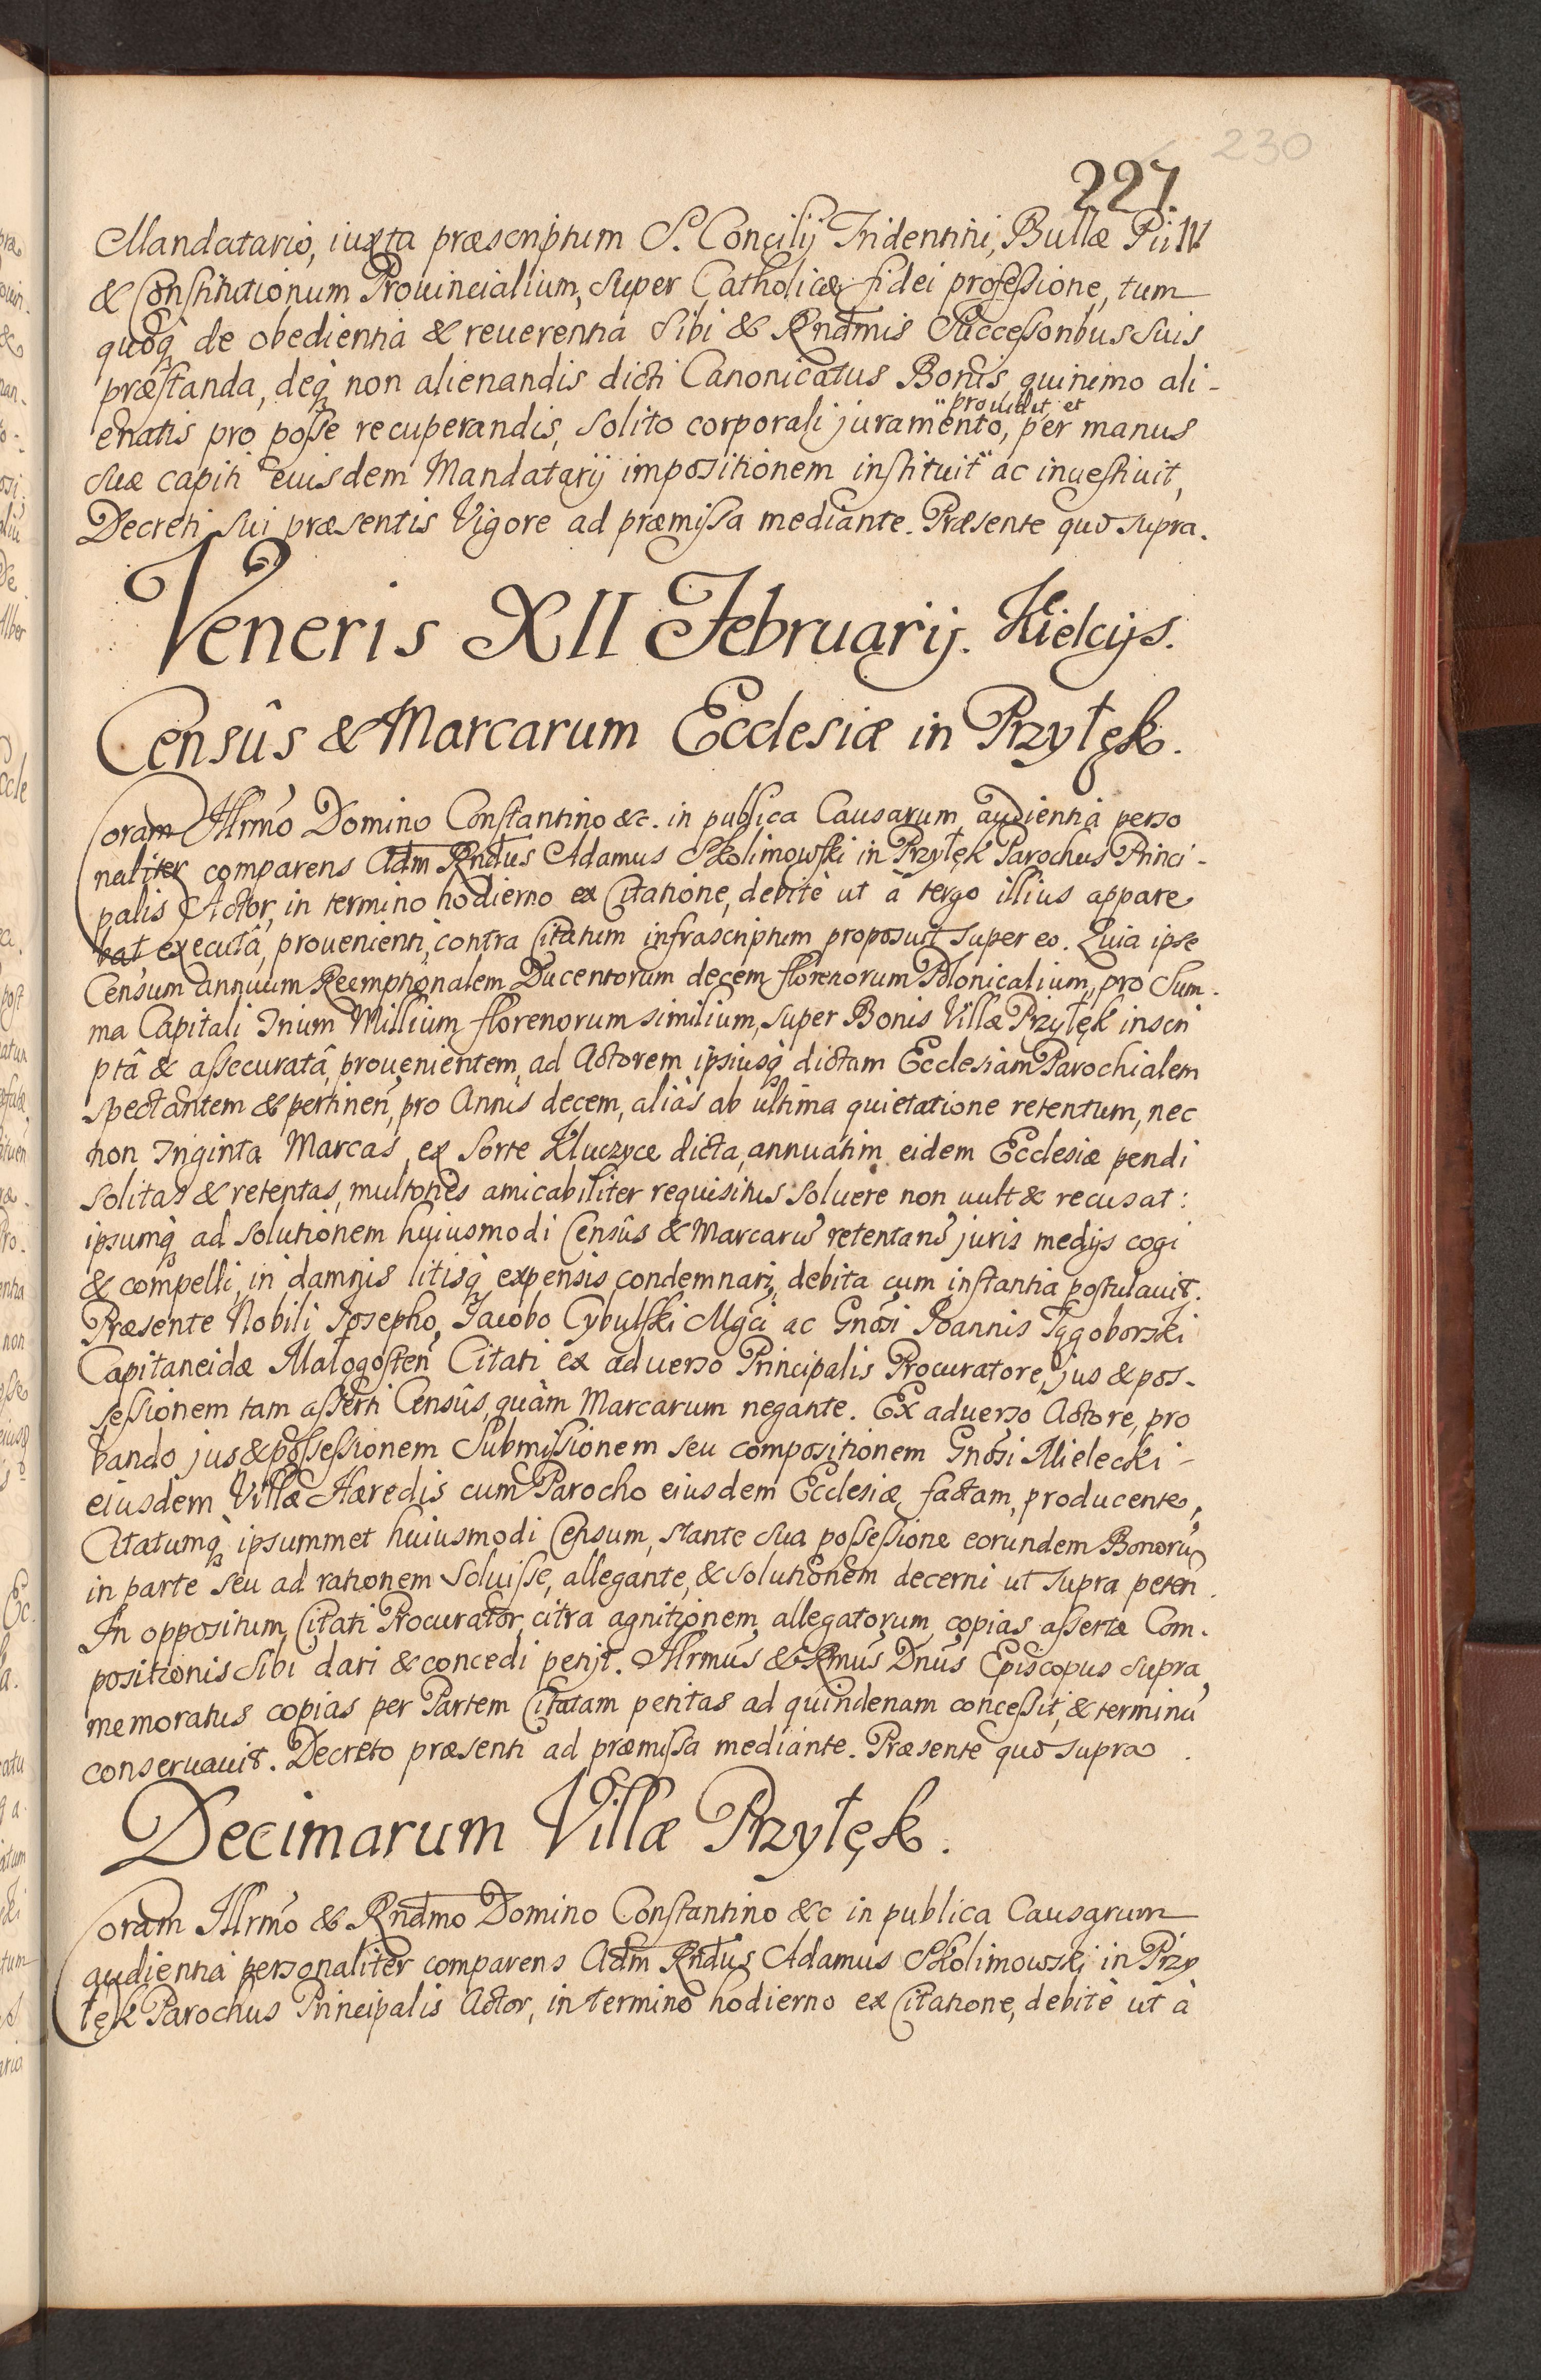 230
227.
Mandatario, iuxta præscriptum S. Concilij Tridentini, Bullæ Pii IV
& Constitutionum Prouincialium, super Catholicæ fidei professione, tum
quoq de obedientia & reuerentia sibi & Rndmis Successoribus suis
præstanda, deq non alienandis dicti Canonicatus Bonis, quinimo ali-
prouidit, et
enatis pro posse recuperandis, solito corporali juramento, per manus
suæ capiti euisdem Mandatarij impositionem instituit" ac inuestiuit,
Decreti sui præsentis Vigore ad præmissa mediante. Præsente quo supra.
Veneris XII Februarij. Kielcijs.
Censûs & Marcarum Ecclesiæ in Przyłęk.
Coram Illrmo Domino Constantino &c. in publica Causarum audientia perso
naliter comparens Adm Rndus Adamus Skolimowski in Przyłęk Parochus Princi-
palis Actor, in termino hodierno ex Citatione, debitè ut à tergo illius appare
bat executâ, prouenienti, contra Citatum infrascriptum proposuit super eo. Quia ipse
Censum annuum Reemptionalem Ducentorum decem florenorum Polonicalium, pro Sum-
ma Capitali Trium Millium florenorum similium, super Bonis Villæ Przyłęk inscri
ptâ & assecuratâ, prouenientem, ad Actorem ipsiusq dictam Ecclesiam Parochialem
spectantem & pertinen, pro Annis decem, aliàs ab ultima quietatione retentum, nec
non Triginta Marcas, ex sorte Kluczyce dicta, annuatim eidem Ecclesiæ pendi
solitas & retentas, multoties amicabiliter requisitus soluere non uult & recusat:
ipsumq ad solutionem huiusmodi Censûs & Marcaru retentaru juris medijs cogi
& compelli, in damnis litisq expensis condemnari, debita cum instantia postulauit.
Præsente Nobili Josepho, Jacobo Cybulski Mgci ac Gnosi Joannis Tęgoborski
Capitaneidæ Małogosten Citati ex aduerso Principalis Procuratore, jus & pos-
sessionem tam asserti Censûs, quàm Marcarum negante. Ex aduerso Actore, pro
bando jus & possessionem Submissionem seu compositionem Gnosi Mielecki -
eiusdem Villæ Hæredis cum Parocho eiusdem Ecclesiæ, factam, producente,
Citatumq ipsummet huiusmodi Censum, stante sua possessione eorundem Bonoru
in parte seu ad rationem soluisse, allegante, & solutionem decerni ut supra peten.
In oppositum, Citati Procurator, citra agnitionem, allegatorum, copias assertæ Com-
positionis sibi dari & concedi petijt. Illrmus & Rmus Dnus Episcopus supra
memoratus copias per Partem Citatam petitas ad quindenam concessit, & terminu
conseruauit. Decreto præsenti ad præmissa mediante. Præsente quo supra.
Decimarum Villæ Przyłęk.
Coram Illrmo & Rndmo Domino Constantino &c in publica Causarum
audientia personaliter comparens Adm Rndus Adamus Skolimowski in Przy
łęk Parochus Principalis Actor, in termino hodierno ex Citatione, debitè ut à